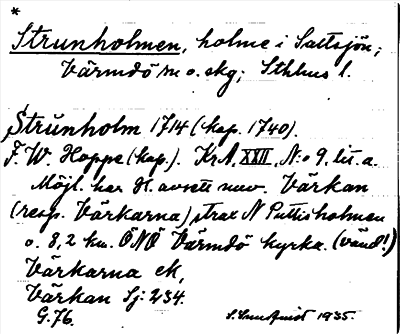 *
Strunholmen, holme i Saltsjön;
Värmdö sn o. skg; Sthlms l.
Strŭnholm 1714 (kop. 1740).
F. W. Hoppe (kop.). KrA, XXII, N:o 9, lit. a.
Möjl. har H. avsett nuv. Värkan
(resp. Värkarna) strax N Puttisholmen
o. 8,2 km. ÖNÖ Värmdö kyrka. (vänd!)
Värkarna ek,
Värkan Sj: 234.
G. 76.
1935.